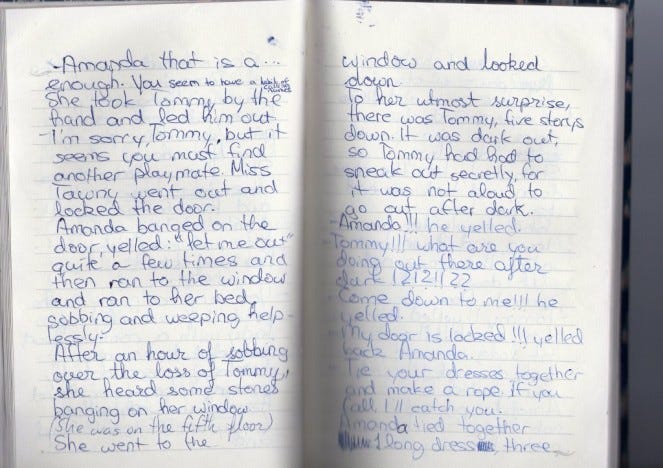 -Amanda that is a ...
enough. You seem to have a
She took Tommy by the
hand and led him out
-I'm sorry, Tommy, but it
seems you must find
another playmate. Miss
Tawny went out and
locked the door.
Amanda banged on the
door, yelled: "let me out"
quite a few times and
then ran to the window
and ran to her bed,
sobbing and weeping help-
lessly.
After an hour of sobbing
over the loss of Tommy,
she heard some stones
banging on her window
(She was on the fifth floor)
She went to the
window and looked
down
To her utmost surprise,
there was Tommy, five storys
down. It was dark out,
so Tommy had had to
sneak out secretly, for
it was not aloud to
go out after dark.
-Amanda!!! he yelled.
-Tommy!!! what are you
doing out there after
dark !?!?!??
-Come down to me!!! he
yelled.
-My door is locked!!! yelled
back Amanda.
-Tie your dresses together
and make a rope. If you
fall I'll catch you.
Amanda tied together
1 long dress, three